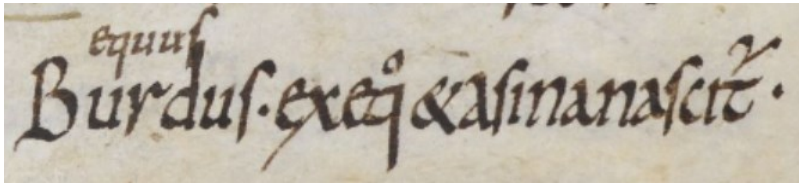 equus
Burdus· exeqͦ & asina nascit᷑·